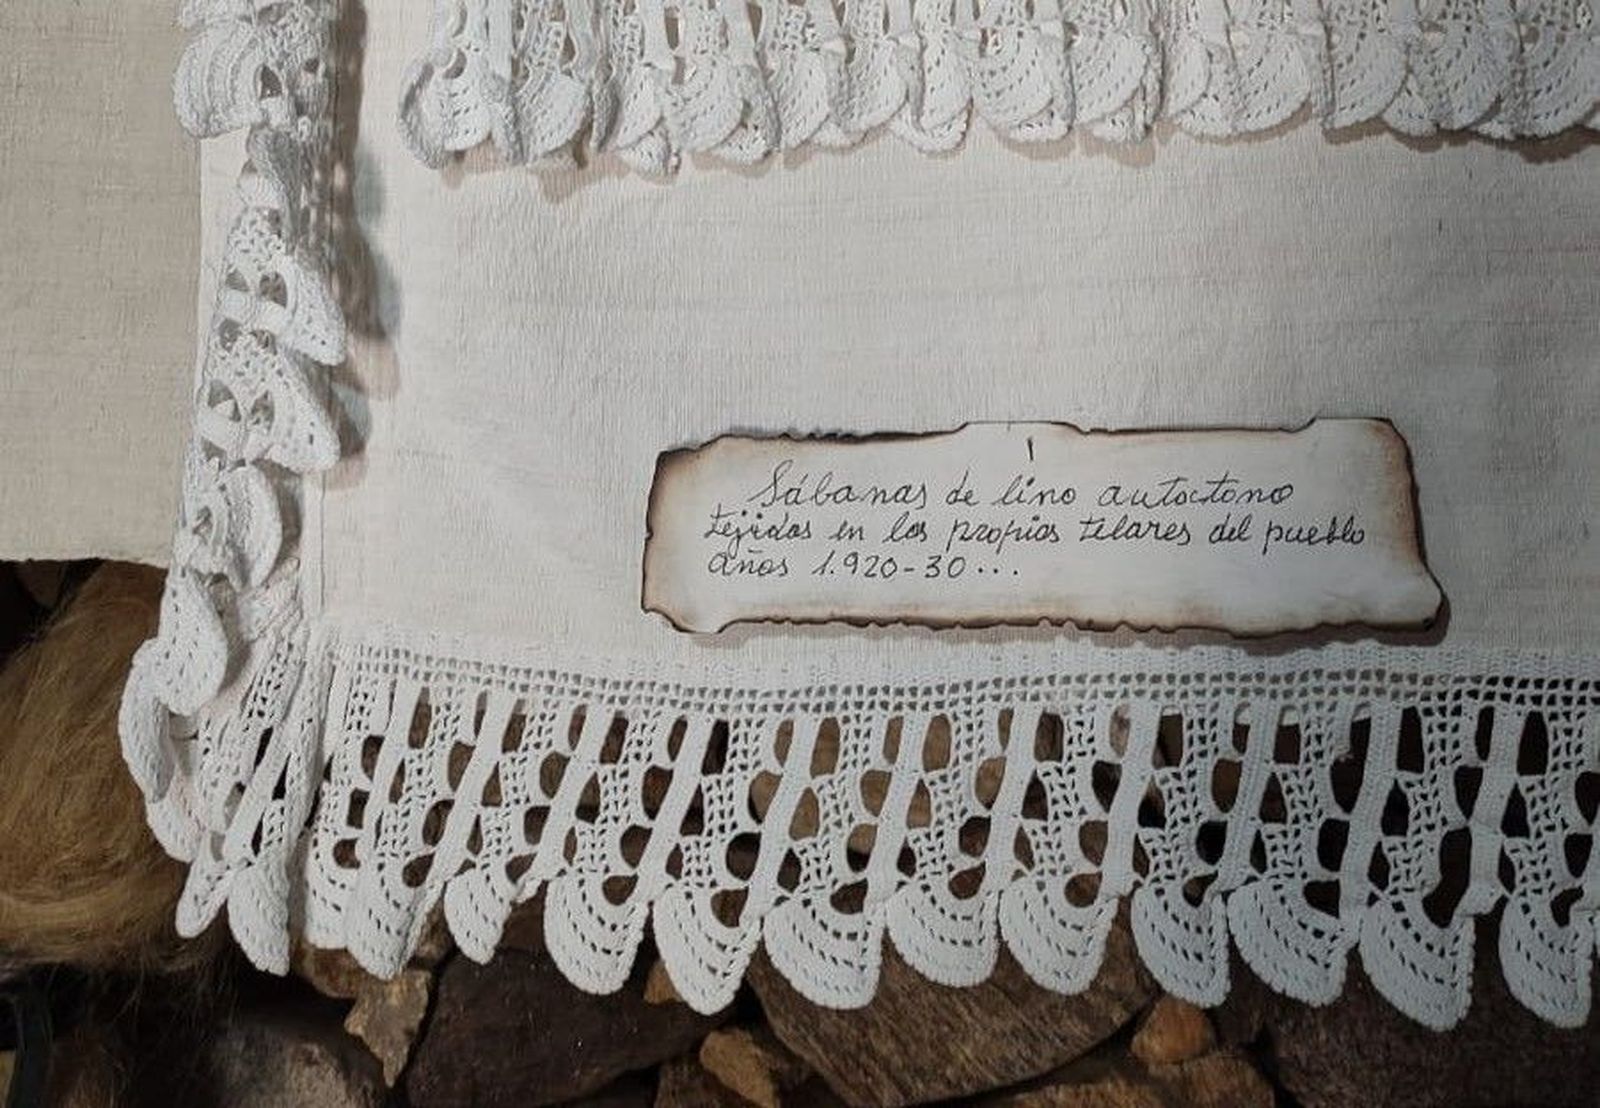 Sábanas de lino autoctono
tejidas en los propios telares del pueblo
años 1.920-30...